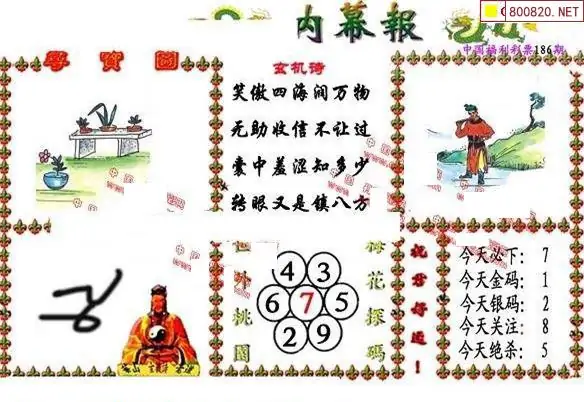 800820.NET
内幕報
中国福利彩票186期
尋寳圖
玄机诗
笑傲四海润万物
无助收信不让过
囊中羞涩知多少
转眼又是镇八方
世外桃園
4 3
6 7 5
2 9
梅花探碼
祝君好运！
今天必下：7
今天金码：1
今天银码：2
今天关注：8
今天绝杀：5